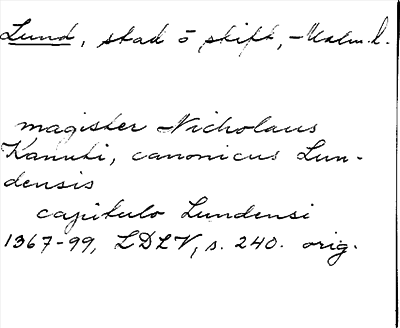 Lund, stad o skift, Malm. l.
magister Nicholaus
Kanuti, canonicus Lun-
densis
capitulo Lundensi
1367-99, LDLV, s. 240. orig.